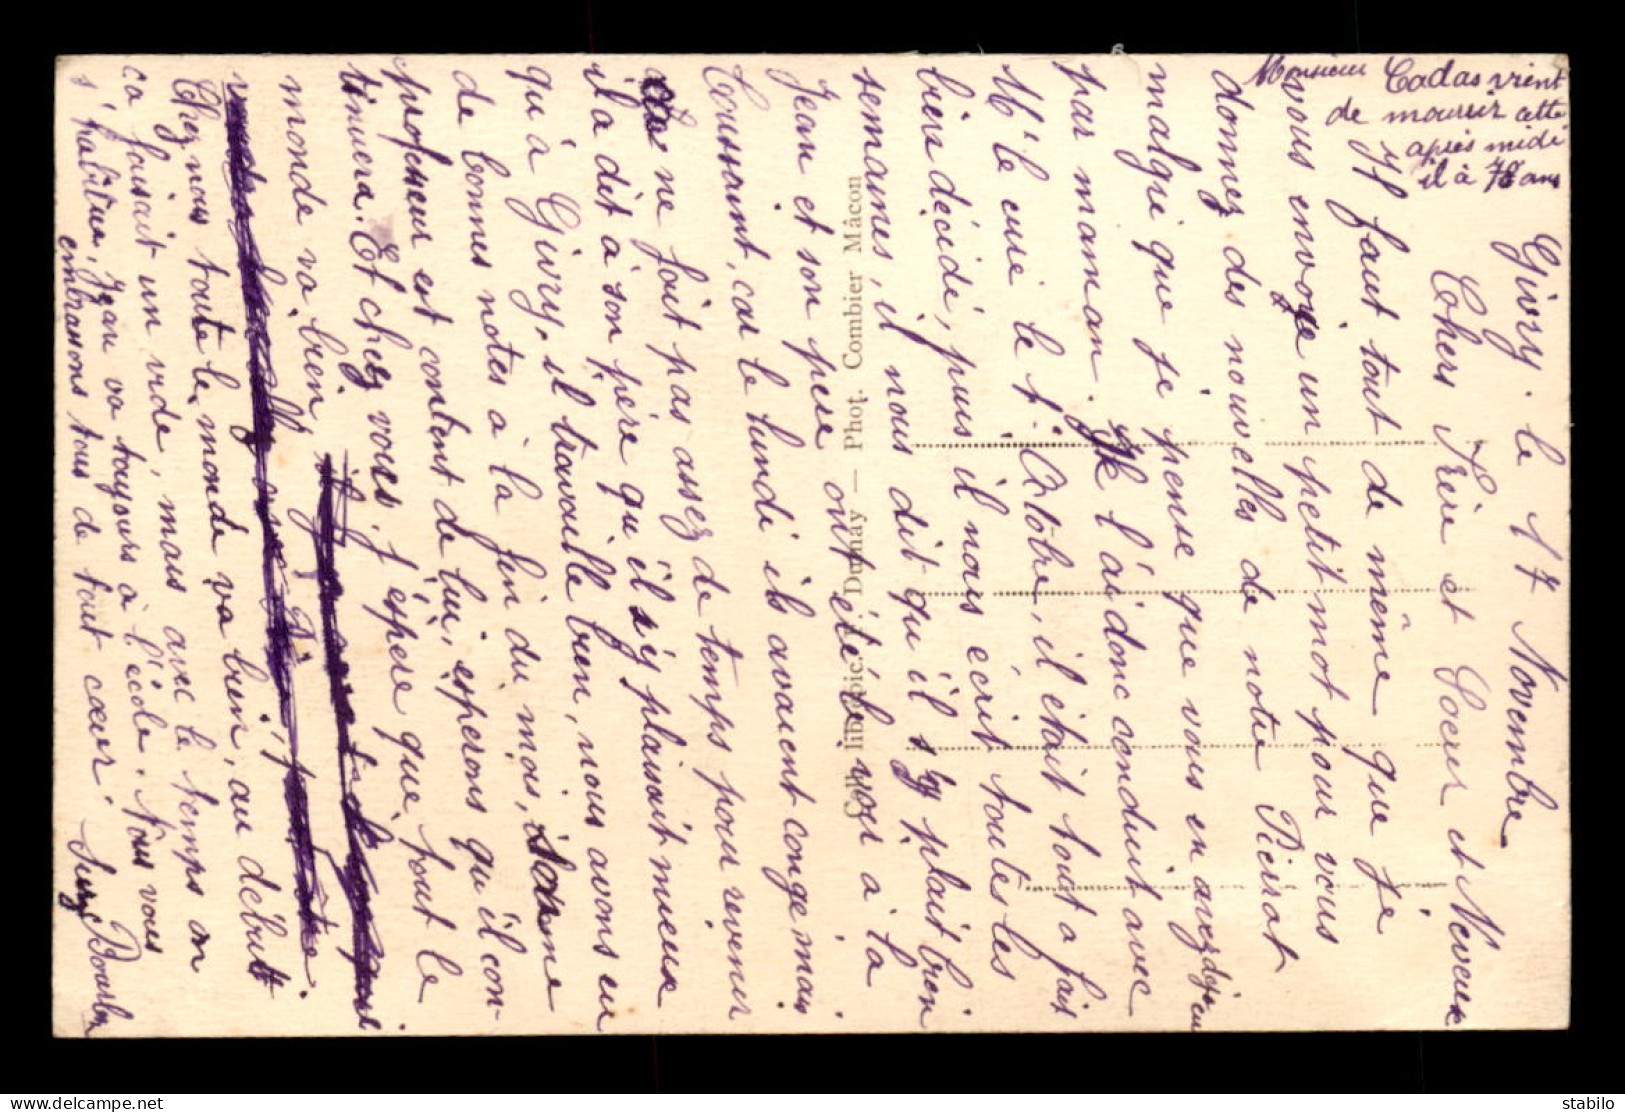 Monsieur Cadas vient
de mourir cette
après midi
il à 78 ans
Givry. le 17 Novembre
Chers Frère et Soeur et Neveux
Il faut tout de même que je
vous envoye un petit mot pour vous
donner des nouvelles de notre Pierrot
malgré que je pense que vous en avez déjà eu
par maman. Je l'ai donc conduit avec
Mr le curé le 1 Octobre, il était tout a fait
bien décidé, puis il nous écrit toutes les
semaines, il nous dit qu'il s'y plait bien
Jean et son père ont été le voir à la
Toussaint, car le lundi ils avaient congé mais
ne fait pas assez de temps pour revenir
il a dit à son père qu'il s'y plaisait mieux
qu'à Givry, il travaille bien, nous avons eu
de bonnes notes à la fin du mois, 
professeur est content de lui, esperons qu'il con-
tinuera. Et chez vous j'éspère que tout le
monde va bien,
Chez nous toute le monde va bien, au début
ca faisait un vide, mais avec le temps on
s'habitue, Jean va toujours à l'école. Nous vous
embrassons tous de tout cœur.
Cl. Dumay — Phot. Combier Mâcon
stabilo